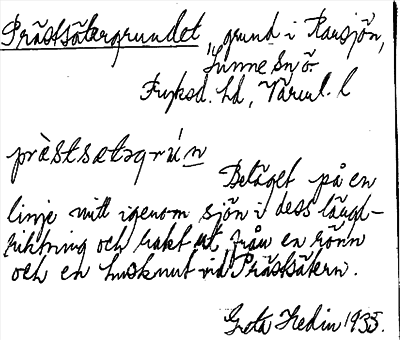 Prästsätergrundet, grund i Ransjön,
Sunne snö.
Fryksd. hd, Värml. l
prästsætəgrún
Beläget på en
linje mitt igenom sjön i dess längd-
riktning och rakt ut från en rönn
och en husknut vid Prästsätern.
Greta Hedin 1935.